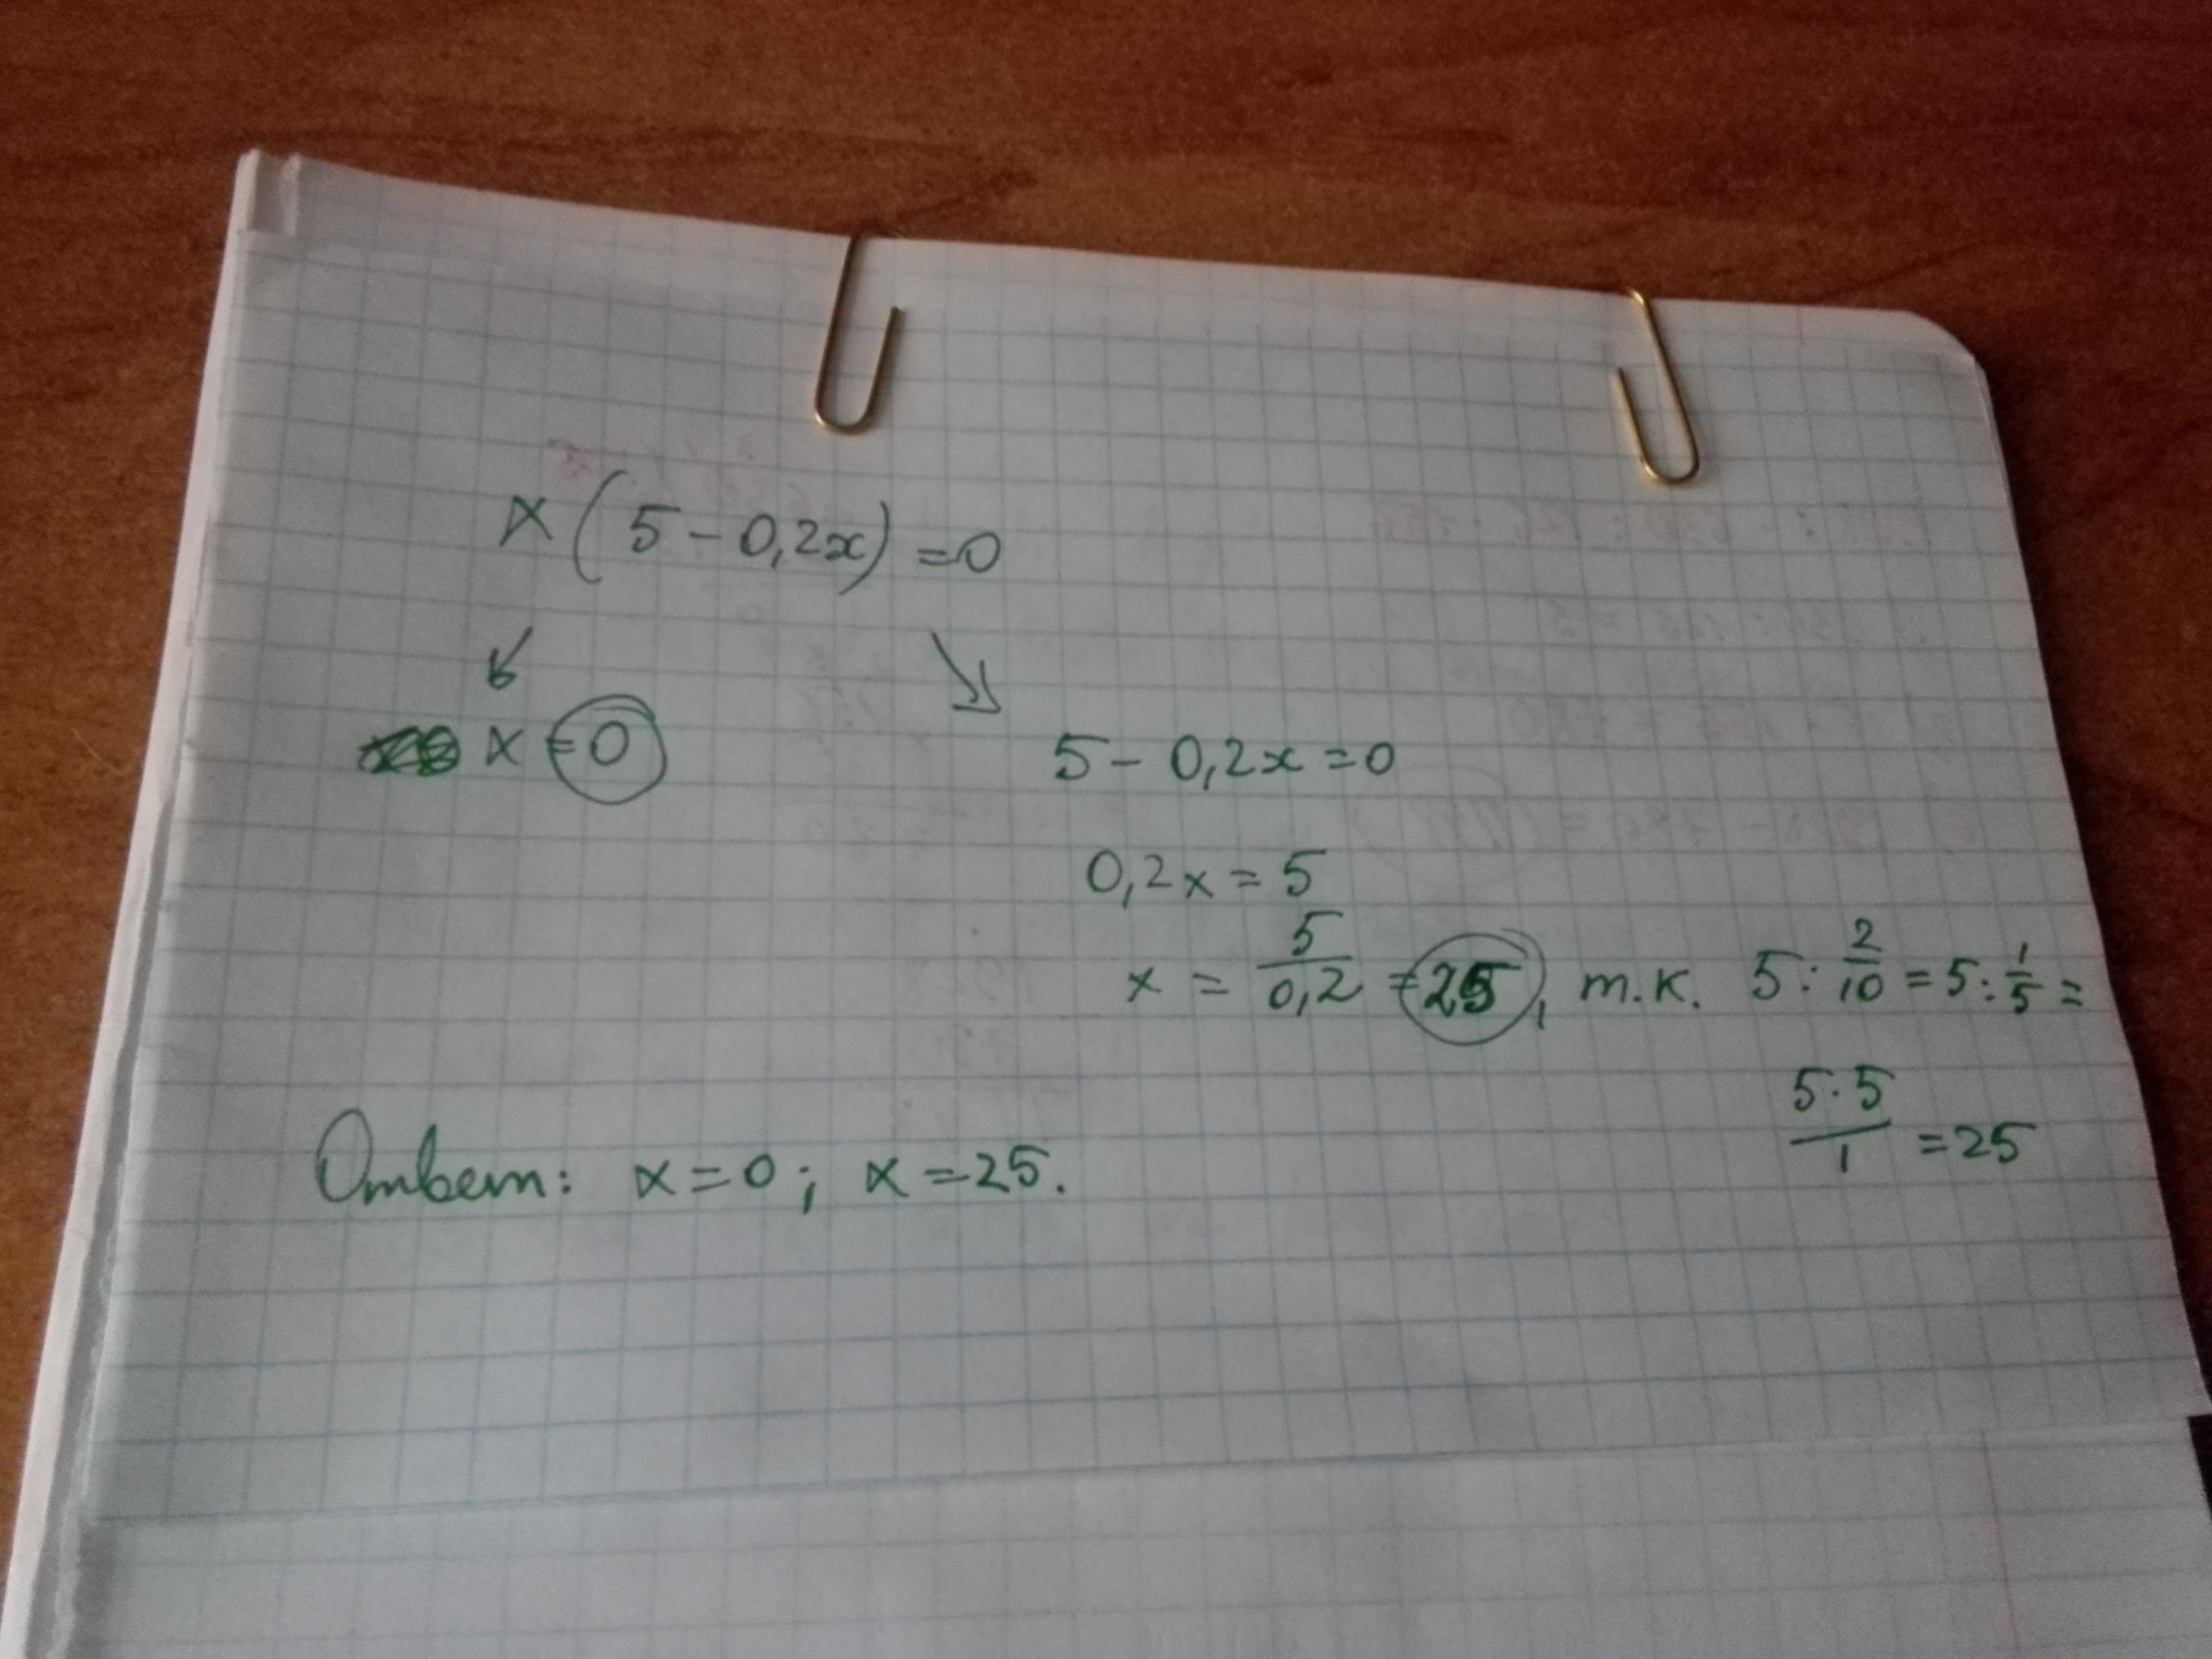 x(5-0,2x)=0
x=0
5-0,2x=0
0,2x=5
x = 5/0,2 = 25, т.к. 5:2/10=5:1/5=
5·5/1 =25
Ответ: x=0; x=25.